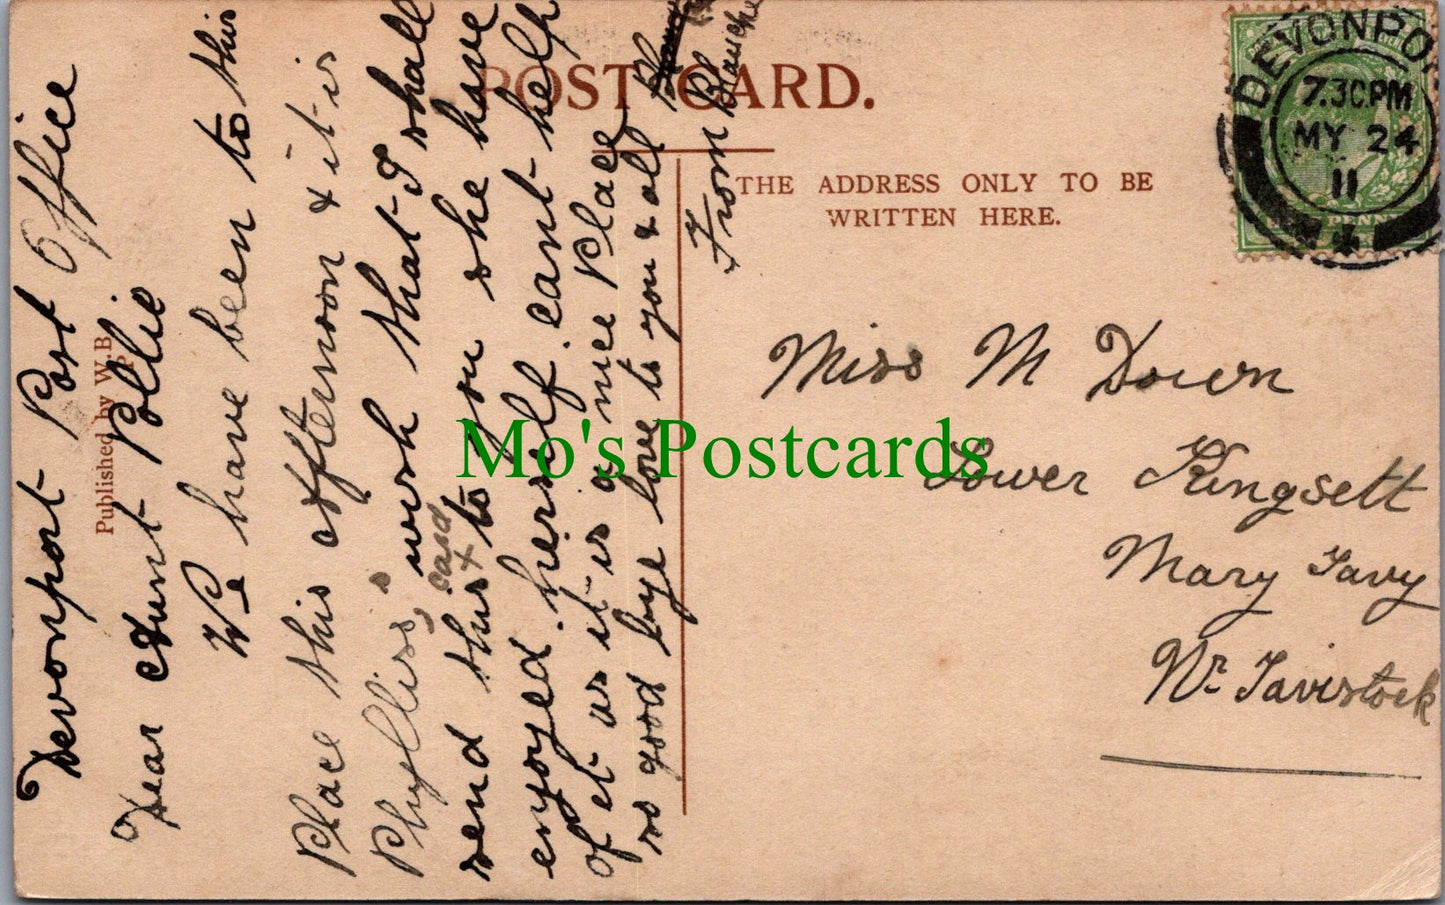 POST CARD.
THE ADDRESS ONLY TO BE
WRITTEN HERE.
DEVONPO
7.30PM
MY 24
11
PENNY
Published by W.B.P
Devonport Post Office
Dear Aunt Pollie
We have been to this
Place this affternoon & it is
Phyllis's wish that I shall
send this card to you she have
enjoyed herself cant help
of it as it is a nice Place
so good bye love to you & all
From Blanche
Miss M Down
Lower Kingsett
Mary Tavy
Nr. Tavistock
Mo's Postcards